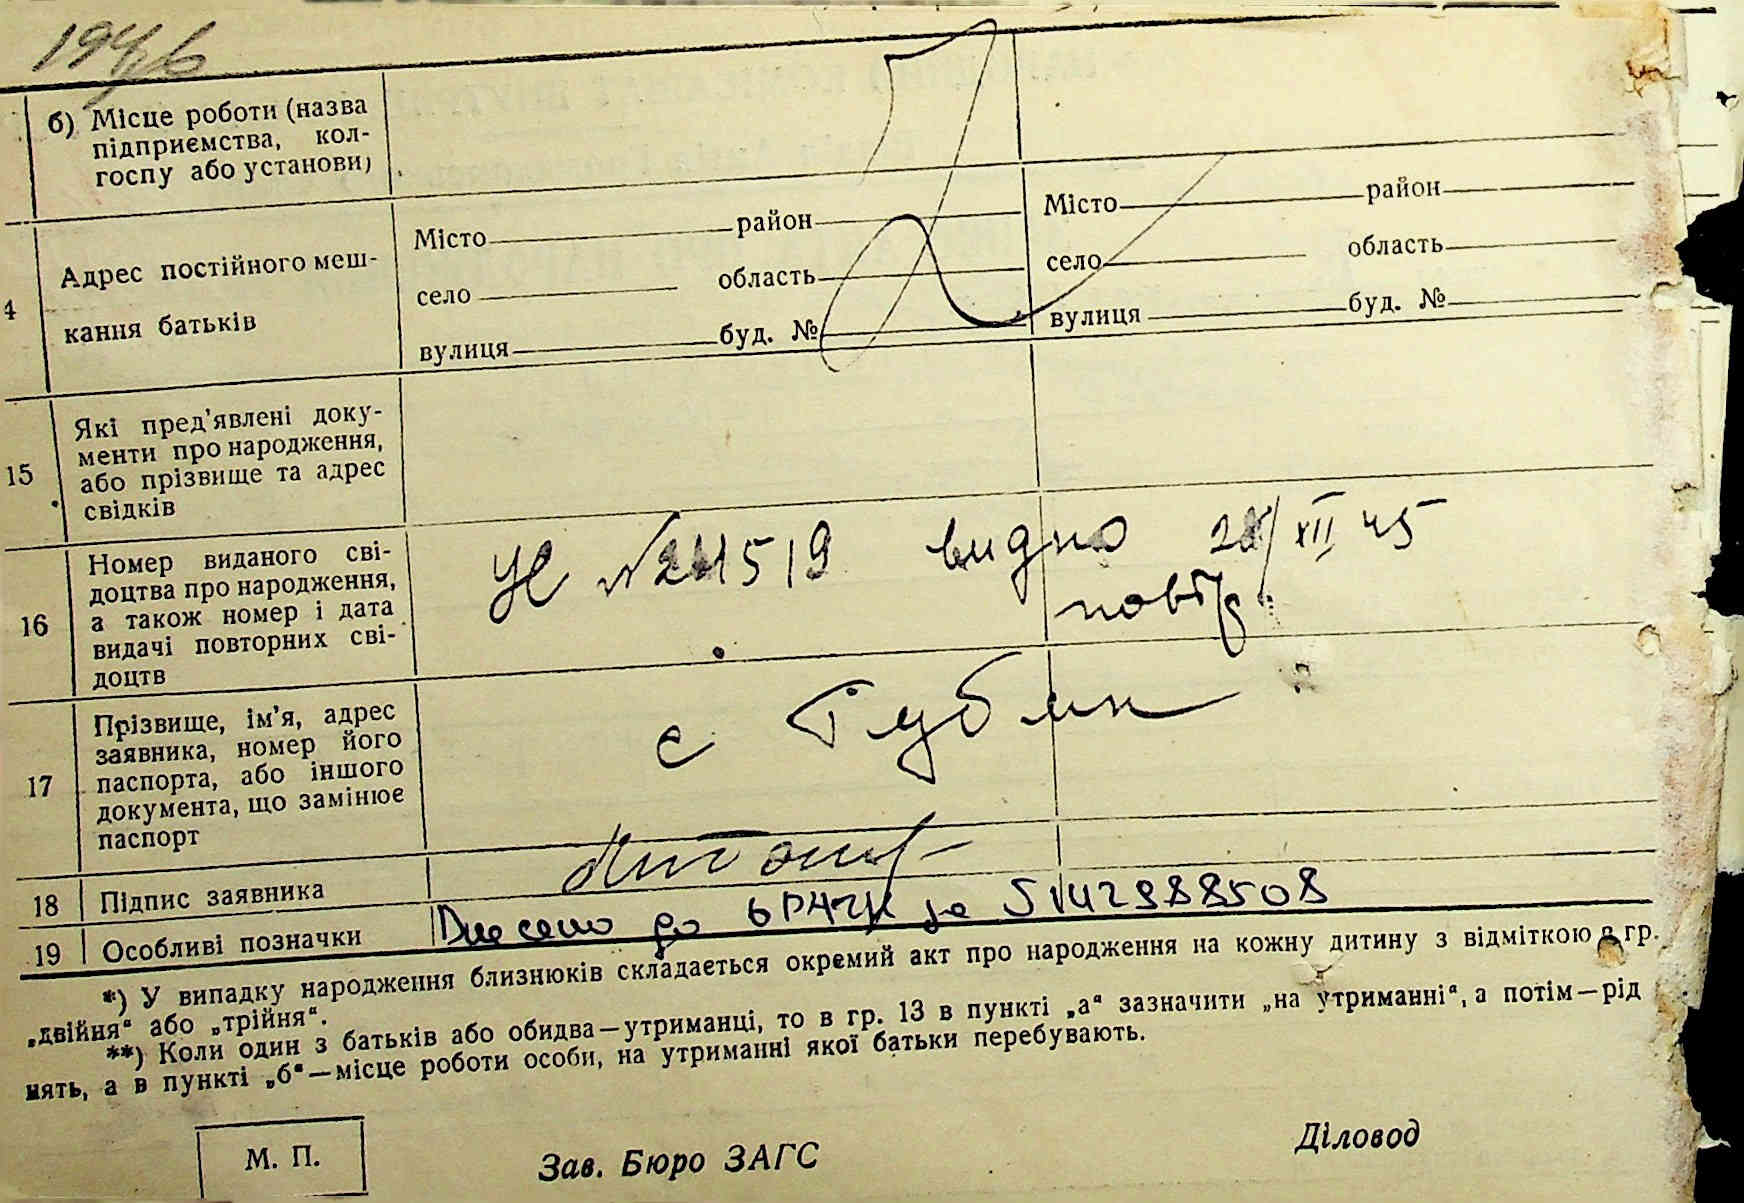 1946
б) Місце роботи (назва
підприємства, кол-
госпу або установи)
4
Адрес постійного меш-
кання батьків
Місто район
село область
вулиця буд. №
Місто район
село область
вулиця буд. №
15
Які пред'явлені доку-
менти про народження,
або прізвище та адрес
свідків
16
Номер виданого сві-
доцтва про народження,
а також номер і дата
видачі повторних сві-
доцтв
№ 24519 видно 28/XII 45
повтр.
17
Прізвище, ім'я, адрес
заявника, номер його
паспорта, або іншого
документа, що замінює
паспорт
с
18 Підпис заявника
19 Особливі позначки
Внесено до за 5142988508
*) У випадку народження близнюків складається окремий акт про народження на кожну дитину з відміткою в гр.
„двійня“ або „трійня“.
**) Коли один з батьків або обидва—утриманці, то в гр. 13 в пункті „а“ зазначити „на утриманні“, а потім—рід
нять, а в пункті „б“—місце роботи особи, на утриманні якої батьки перебувають.
М. П.
Зав. Бюро ЗАГС
Діловод